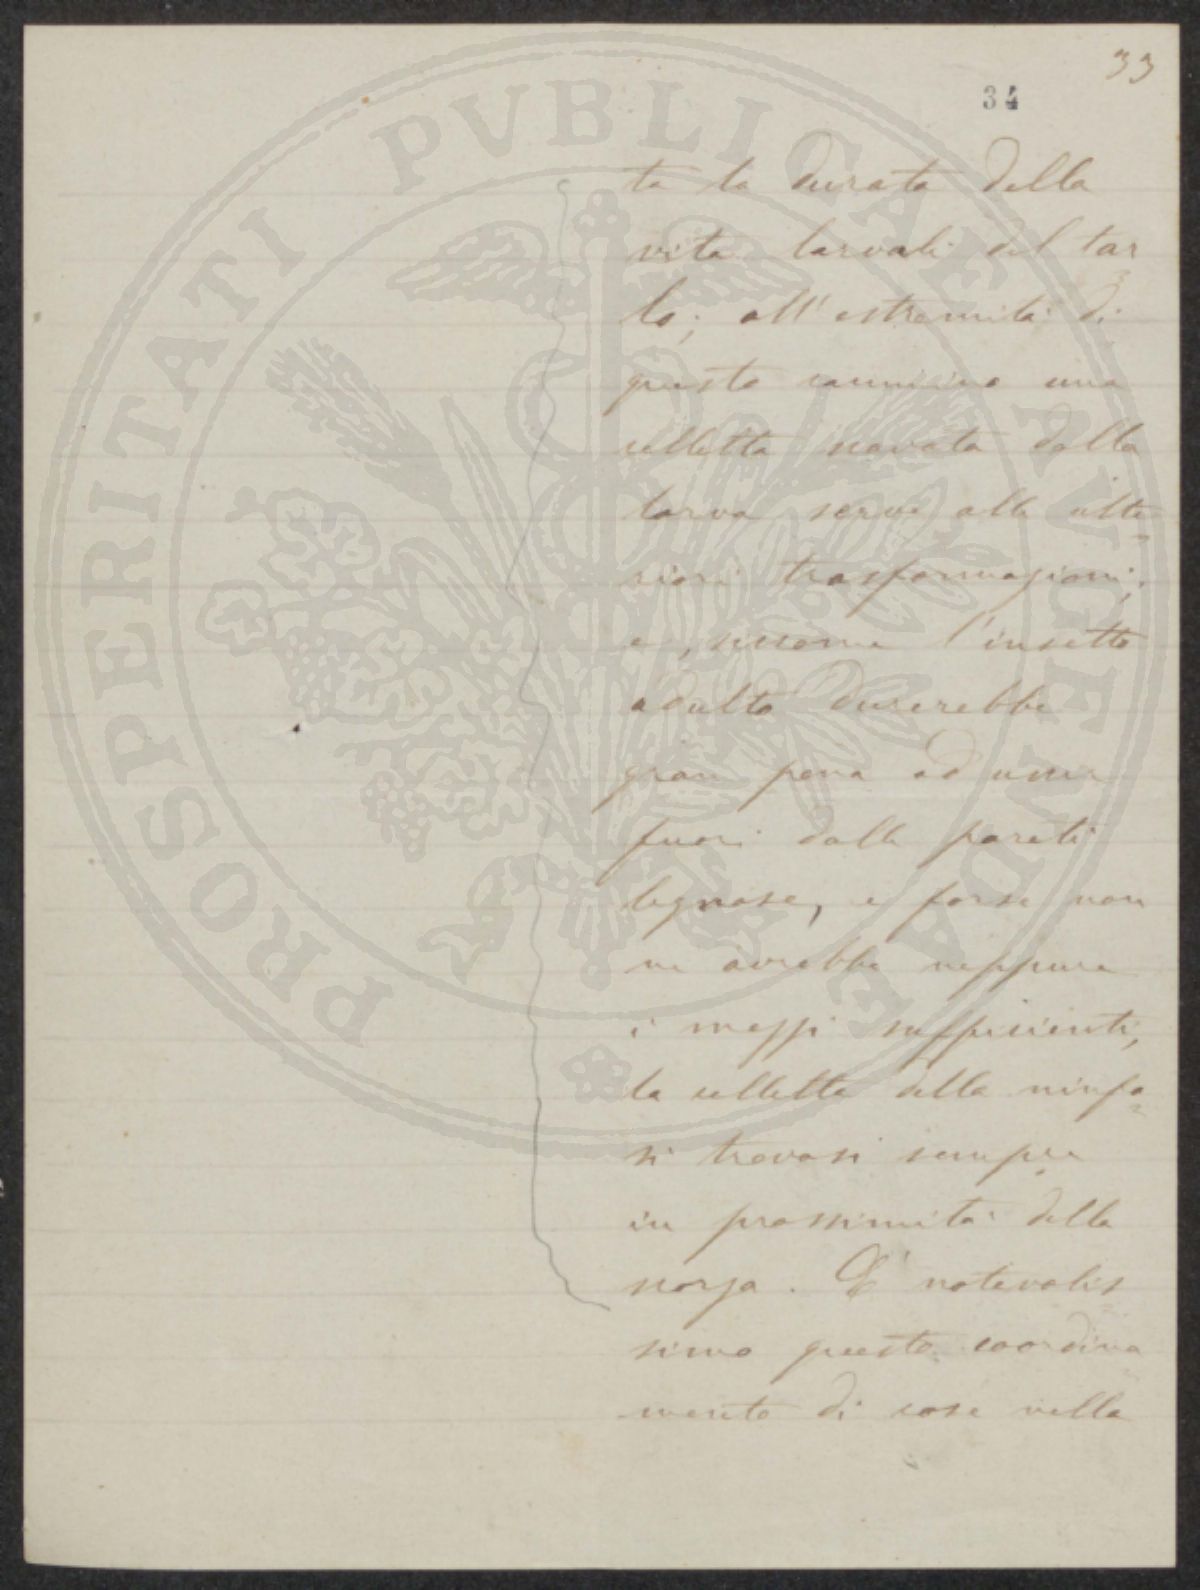 33
34
ta la durata della
vita larvale del tar
lo; all'estremità di
questo cammino una
celletta scavata dalla
larva serve alle ulte
riori trasformazioni;
e, siccome l'insetto
adulto durerebbe
gran pena ad uscir
fuori dalle pareti
legnose, e forse non
ne avrebbe neppure
i mezzi sufficienti,
la celletta della ninfa
si trovasi sempre
in prossimità della
scorza. E' notevolis
simo questo coordina
mento di cose nella
PROSPERITATI PVBLICAE AVGENDAE